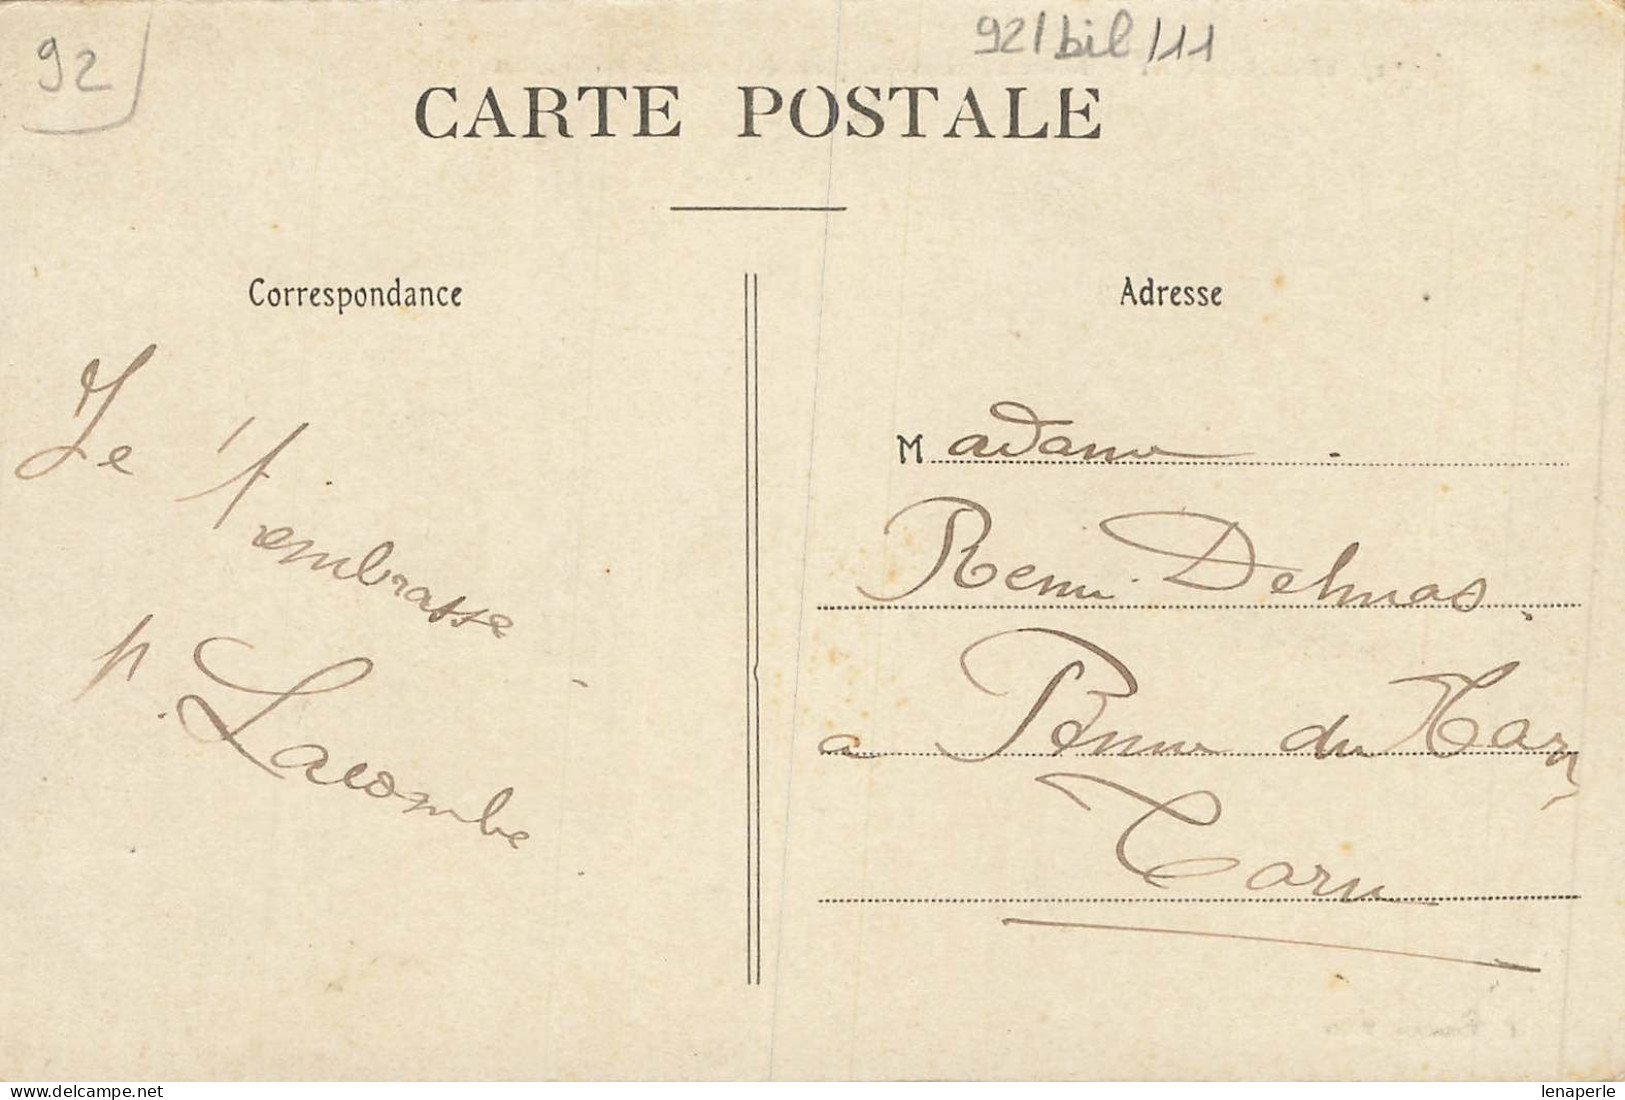 92
92/bil/11
CARTE POSTALE
Correspondance
Adresse
Je t'
embrasse
p. Lacombe
Madame
Remi Delmas
a Penne du Tarn
Tarn
delcampe.net
lenaperle